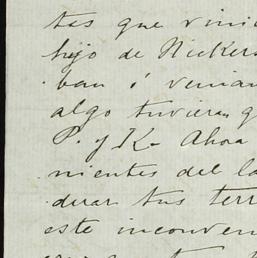 tas que vinie
hijo de Nickers
ban i venian
algo tuvieran q
P. y K. Ahora
nientes del la
derar tus terr
este inconven